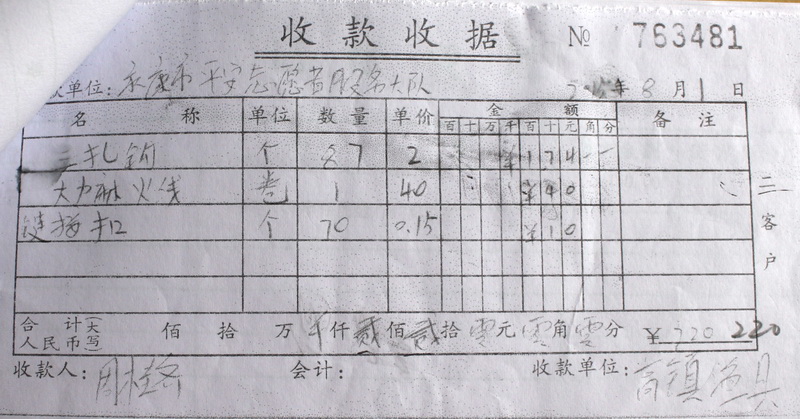 收款收据 № 763481
款单位: 永康市平安志愿者服务大队 年 8 月 1 日
名 称 单位 数量 单价 金 额 备 注
百 十 万 千 百 十 元 角 分
个 87 2 ¥ 1 7 4 - -
大力 火线 卷 1 40 ¥ 4 0
接扣 个 70 0.15 ¥ 1 0
二 客户
合 计 (大写) 人民币 佰 拾 万 仟 贰 佰 贰 拾 零 元 零 角 零 分 ¥ 220 220
收款人: 周 会计: 收款单位: 渔具